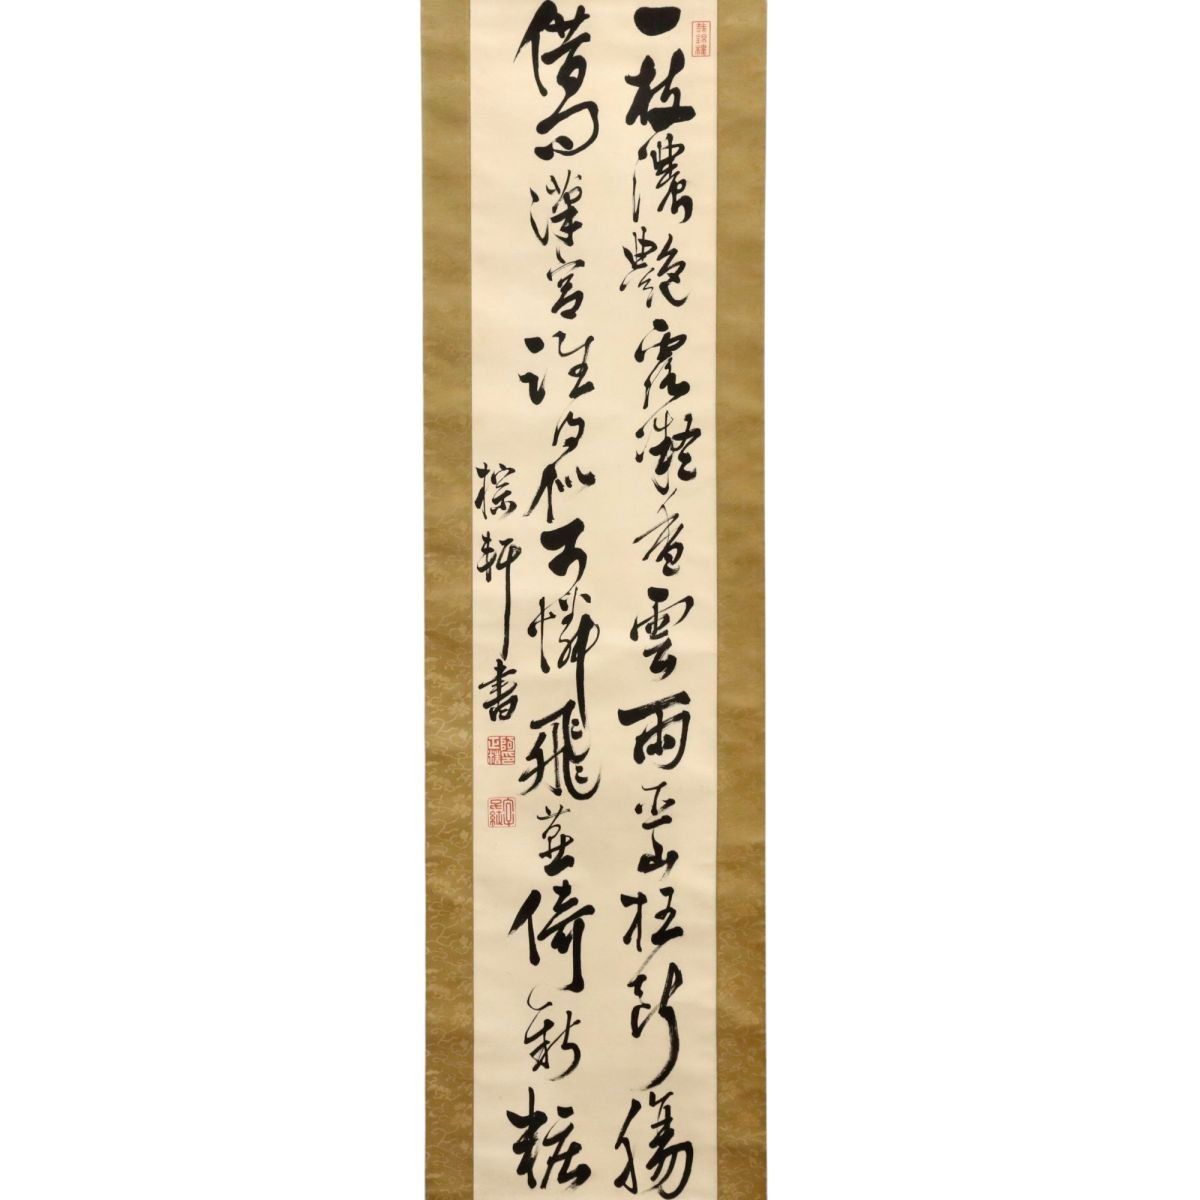 一枝濃艶露凝香雲雨巫山枉断腸
借問漢宮誰得似可憐飛燕倚新粧
棕軒書